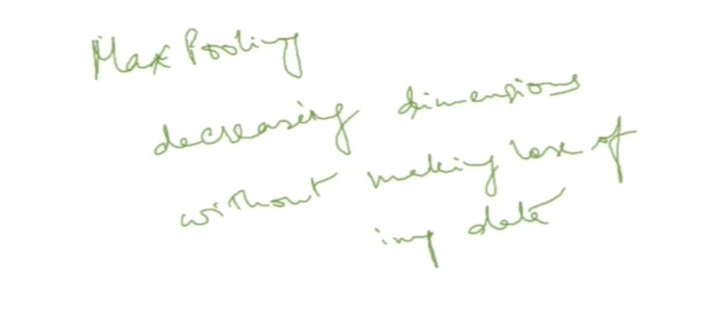 Max Pooling
decreasing dimensions
without making lose of
imp data